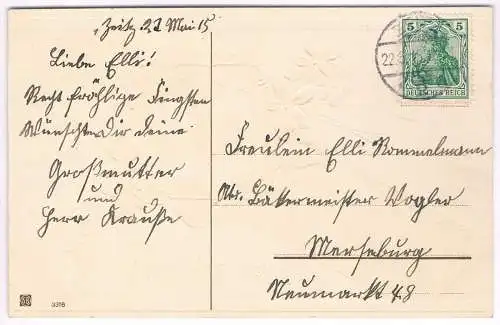 Zeitz 22 Mai 15
Liebe Elli!
Recht fröhlige Fingsten
Wünscht Dir deine
Großmutter
und
Herr Krauße
5 5
DEUTSCHES REICH
22.5
Fräulein Elli
Bäkermeister Vogler
Merseburg
Neumarkt 48
3378